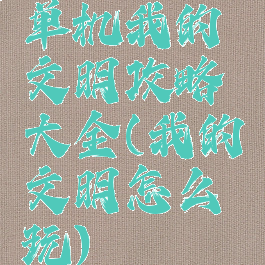 单机我的
文明攻略
大全(我的
文明怎么
玩)